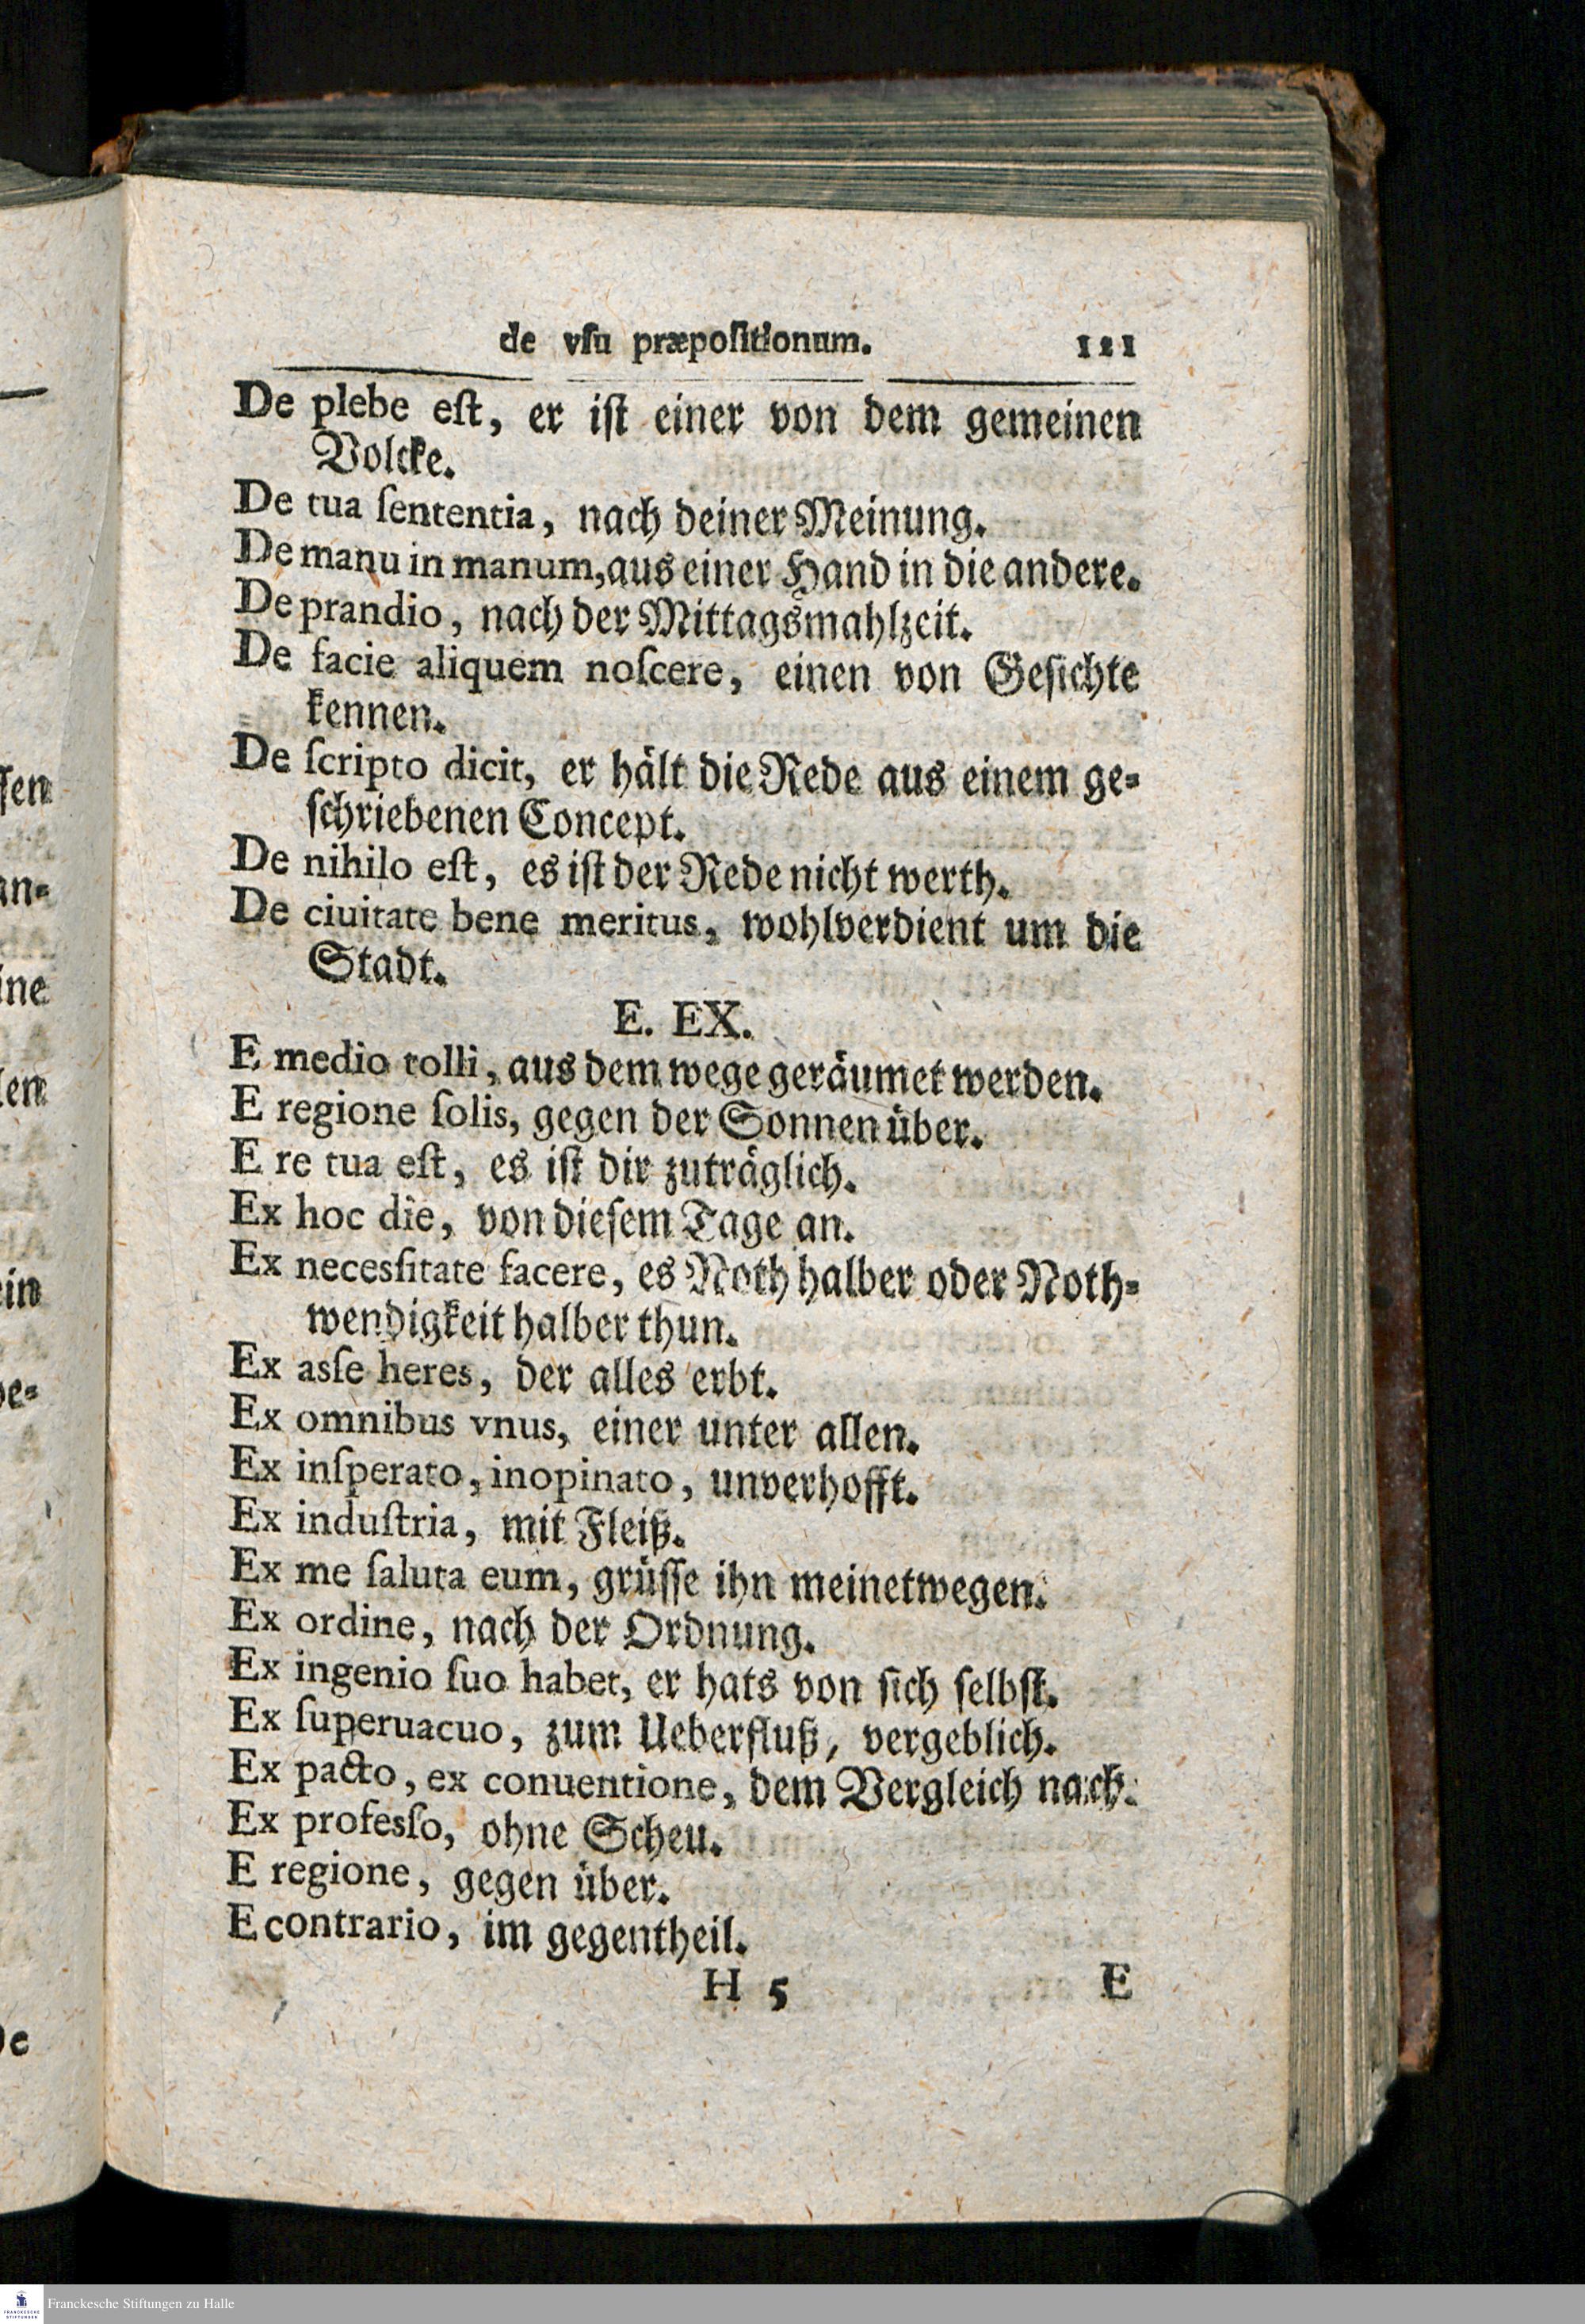 de vſu præpoſitionum. 111
De plebe eſt, er iſt einer von dem gemeinen
Volcke.
De tua ſententia, nach deiner Meinung.
De manu in manum, aus einer Hand in die andere.
De prandio, nach der Mittagsmahlzeit.
De facie aliquem noſcere, einen von Geſichte
kennen.
De ſcripto dicit, er hält die Rede aus einem ge-
ſchriebenen Concept.
De nihilo eſt, es iſt der Rede nicht werth.
De ciuitate bene meritus, wohlverdient um die
Stadt.
E. EX.
E medio tolli, aus dem wege geräumet werden.
E regione ſolis, gegen der Sonnen über.
E re tua eſt, es iſt dir zuträglich.
Ex hoc die, von dieſem Tage an.
Ex necesſitate facere, es Noth halber oder Noth-
wendigkeit halber thun.
Ex asſe heres, der alles erbt.
Ex omnibus vnus, einer unter allen.
Ex inſperato, inopinato, unverhofft.
Ex induſtria, mit Fleiß.
Ex me ſaluta eum, grüſſe ihn meinetwegen.
Ex ordine, nach der Ordnung.
Ex ingenio ſuo habet, er hats von ſich ſelbſt.
Ex ſuperuacuo, zum Ueberfluß, vergeblich.
Ex pacto, ex conuentione, dem Vergleich nach.
Ex profesſo, ohne Scheu.
E regione, gegen über.
E contrario, im gegentheil.
H 5 E
ſſen
an-
ine
len
ein
be-
De
FRANCKESCHE
STIFTUNGEN
Franckesche Stiftungen zu Halle